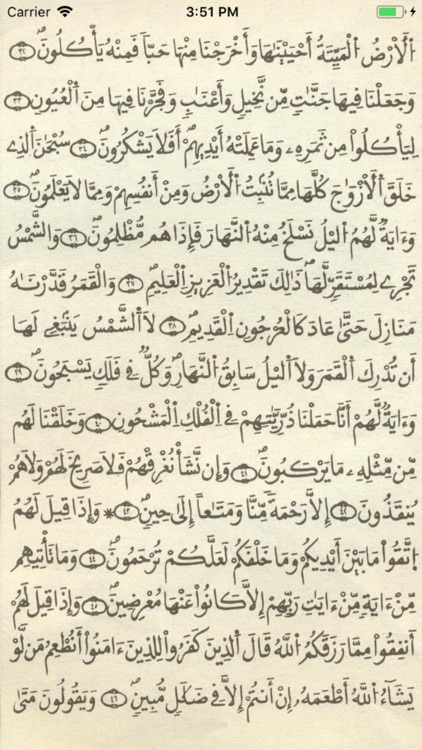 Carrier 3:51 PM
اُ۬لَارْضُ اُ۬لْمَيِّتَةُ أَحْيَيْنَٰهَا وَأَخْرَجْنَا مِنْهَا حَبّاٗ فَمِنْهُ يَأْكُلُونَۖ ٣٢
وَجَعَلْنَا فِيهَا جَنَّٰتٖ مِّن نَّخِيلٖ وَأَعْنَٰبٖ وَفَجَّرْنَا فِيهَا مِنَ اَ۬لْعُيُونِ ٣٣
لِيَأْكُلُواْ مِن ثَمَرِهِۦ وَمَا عَمِلَتْهُ أَيْدِيهِمُۥٓۖ أَفَلَا يَشْكُرُونَۖ ٣٤ سُبْحَٰنَ اَ۬لذِے
خَلَقَ اَ۬لَازْوَٰجَ كُلَّهَا مِمَّا تُنۢبِتُ اُ۬لَارْضُ وَمِنَ اَنفُسِهِمْ وَمِمَّا لَا يَعْلَمُونَۖ ٣٥
وَءَايَةٞ لَّهُمُ اُ۬ليْلُ نَسْلَخُ مِنْهُ اُ۬لنَّهَارَ فَإِذَا هُم مُّظْلِمُونَۖ ٣٦ وَالشَّمْسُ
تَجْرِے لِمُسْتَقَرّٖ لَّهَاۖ ذَٰلِكَ تَقْدِيرُ اُ۬لْعَزِيزِ اِ۬لْعَلِيمِۖ ٣٧ وَالْقَمَرُ قَدَّرْنَٰهُ
مَنَازِلَ حَتَّىٰ عَادَ كَالْعُرْجُونِ اِ۬لْقَدِيمِۖ ٣٨ لَا اَ۬لشَّمْسُ يَنۢبَغِے لَهَا
أَن تُدْرِكَ اَ۬لْقَمَرَ وَلَا اَ۬ليْلُ سَابِقُ اُ۬لنَّهَارِۖ وَكُلّٞ فِے فَلَكٖ يَسْبَحُونَۖ ٣٩
وَءَايَةٞ لَّهُمُۥٓ أَنَّا حَمَلْنَا ذُرِّيَّٰتِهِمْ فِے اِ۬لْفُلْكِ اِ۬لْمَشْحُونِ ٤٠ وَخَلَقْنَا لَهُم
مِّن مِّثْلِهِۦ مَا يَرْكَبُونَۖ ٤١ وَإِن نَّشَأْ نُغْرِقْهُمْ فَلَا صَرِيخَ لَهُمْ وَلَا هُمْ
يُنقَذُونَ ٤٢ إِلَّا رَحْمَةٗ مِّنَّا وَمَتَٰعاً اِلَىٰ حِينٖۖ ٤٣ ۞ وَإِذَا قِيلَ لَهُمُ
اُ۪تَّقُواْ مَا بَيْنَ أَيْدِيكُمْ وَمَا خَلْفَكُمْ لَعَلَّكُمْ تُرْحَمُونَۖ ٤٤ وَمَا تَأْتِيهِم
مِّنَ اٰيَةٖ مِّنَ اٰيَٰتِ رَبِّهِمُۥٓ إِلَّا كَانُواْ عَنْهَا مُعْرِضِينَۖ ٤٥ وَإِذَا قِيلَ لَهُمُۥٓ
أَنفِقُواْ مِمَّا رَزَقَكُمُ اُ۬للَّهُ قَالَ اَ۬لذِينَ كَفَرُواْ لِلذِينَ ءَامَنُوٓاْ أَنُطْعِمُ مَن لَّوْ
يَشَآءُ اُ۬للَّهُ أَطْعَمَهُۥٓ إِنَ اَنتُمُۥٓ إِلَّا فِے ضَلَٰلٖ مُّبِينٖۖ ٤٦ وَيَقُولُونَ مَتَىٰ